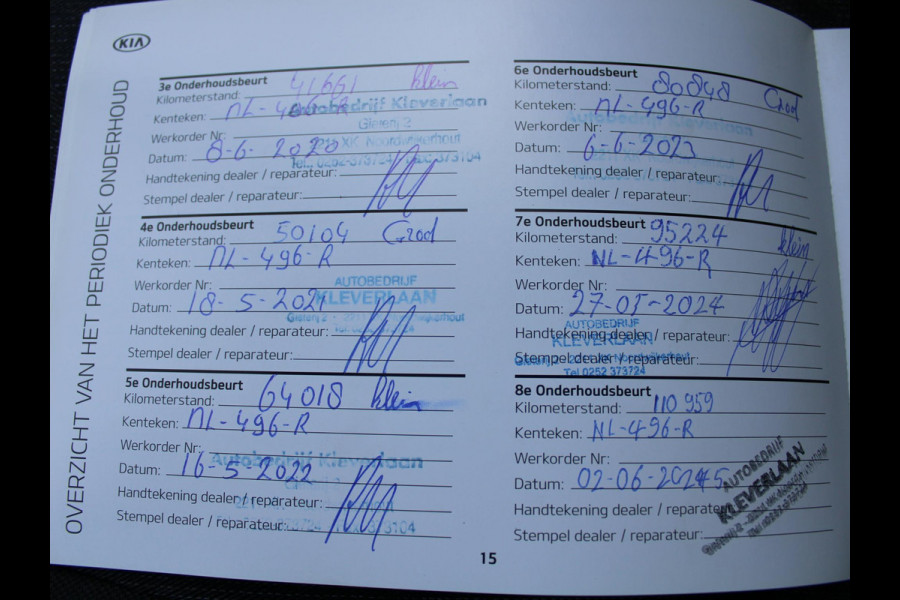 KIA
OVERZICHT VAN HET PERIODIEK ONDERHOUD
3e Onderhoudsbeurt
Kilometerstand: 41661 klein
Kenteken: NL-496-R
Autobedrijf Kleverlaan
Werkorder Nr:
Datum: 8-6-2020
Handtekening dealer / reparateur:
Stempel dealer / reparateur:
4e Onderhoudsbeurt
Kilometerstand: 50104 Groot
Kenteken: NL-496-R
Werkorder Nr:
AUTOBEDRIJF
KLEVERLAAN
Datum: 18-5-2021
Handtekening dealer / reparateur:
Stempel dealer / reparateur:
5e Onderhoudsbeurt
Kilometerstand: 64018 klein
Kenteken: NL-496-R
Werkorder Nr:
Autobedrijf Kleverlaan
Datum: 16-5-2022
Handtekening dealer / reparateur:
Stempel dealer / reparateur:
6e Onderhoudsbeurt
Kilometerstand: 80848 Groot
Kenteken: NL-496-R
Autobedrijf Kleverlaan
Werkorder Nr:
Datum: 6-6-2023
Handtekening dealer / reparateur:
Stempel dealer / reparateur:
7e Onderhoudsbeurt
Kilometerstand: 95224 klein
Kenteken: NL-496-R
Werkorder Nr:
Datum: 27-05-2024
AUTOBEDRIJF
Handtekening dealer / reparateur:
KLEVERLAAN
Stempel dealer / reparateur:
Tel 0252 373724
8e Onderhoudsbeurt
Kilometerstand: 110 959
Kenteken: NL-496-R
Werkorder Nr:
Datum: 02-06-2025
AUTOBEDRIJF
KLEVERLAAN
Handtekening dealer / reparateur:
Stempel dealer / reparateur:
15